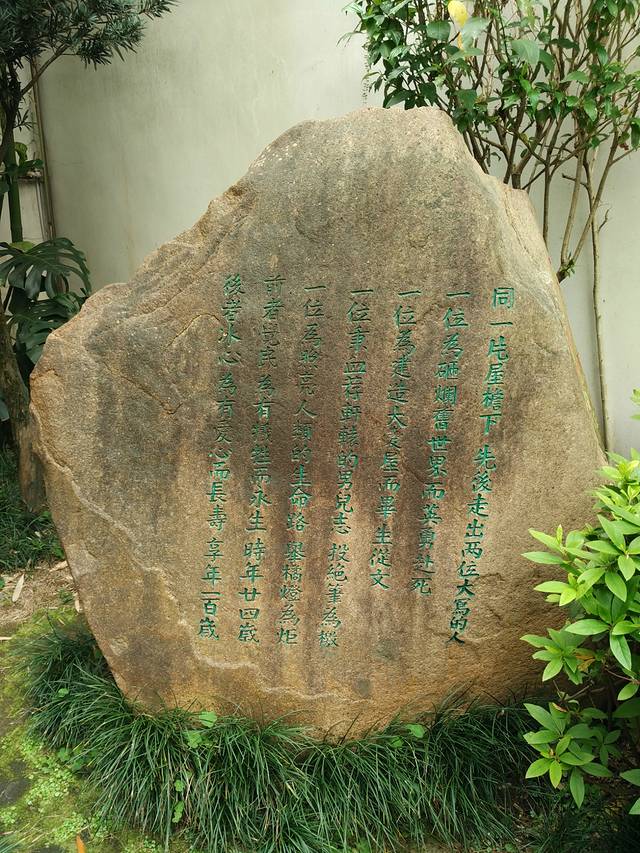 同一片屋檐下 先後走出两位大寫的人
一位為砸爛舊世界而英勇赴死
一位為建造大愛屋而畢生從文
一位秉血荐軒轅的男兒志 投絕筆為檄
一位為照亮人類的生命路 舉橘燈為炬
前者覺民 為有犧牲而永生 時年廿四歲
後者冰心 為有愛心而長壽 享年一百歲